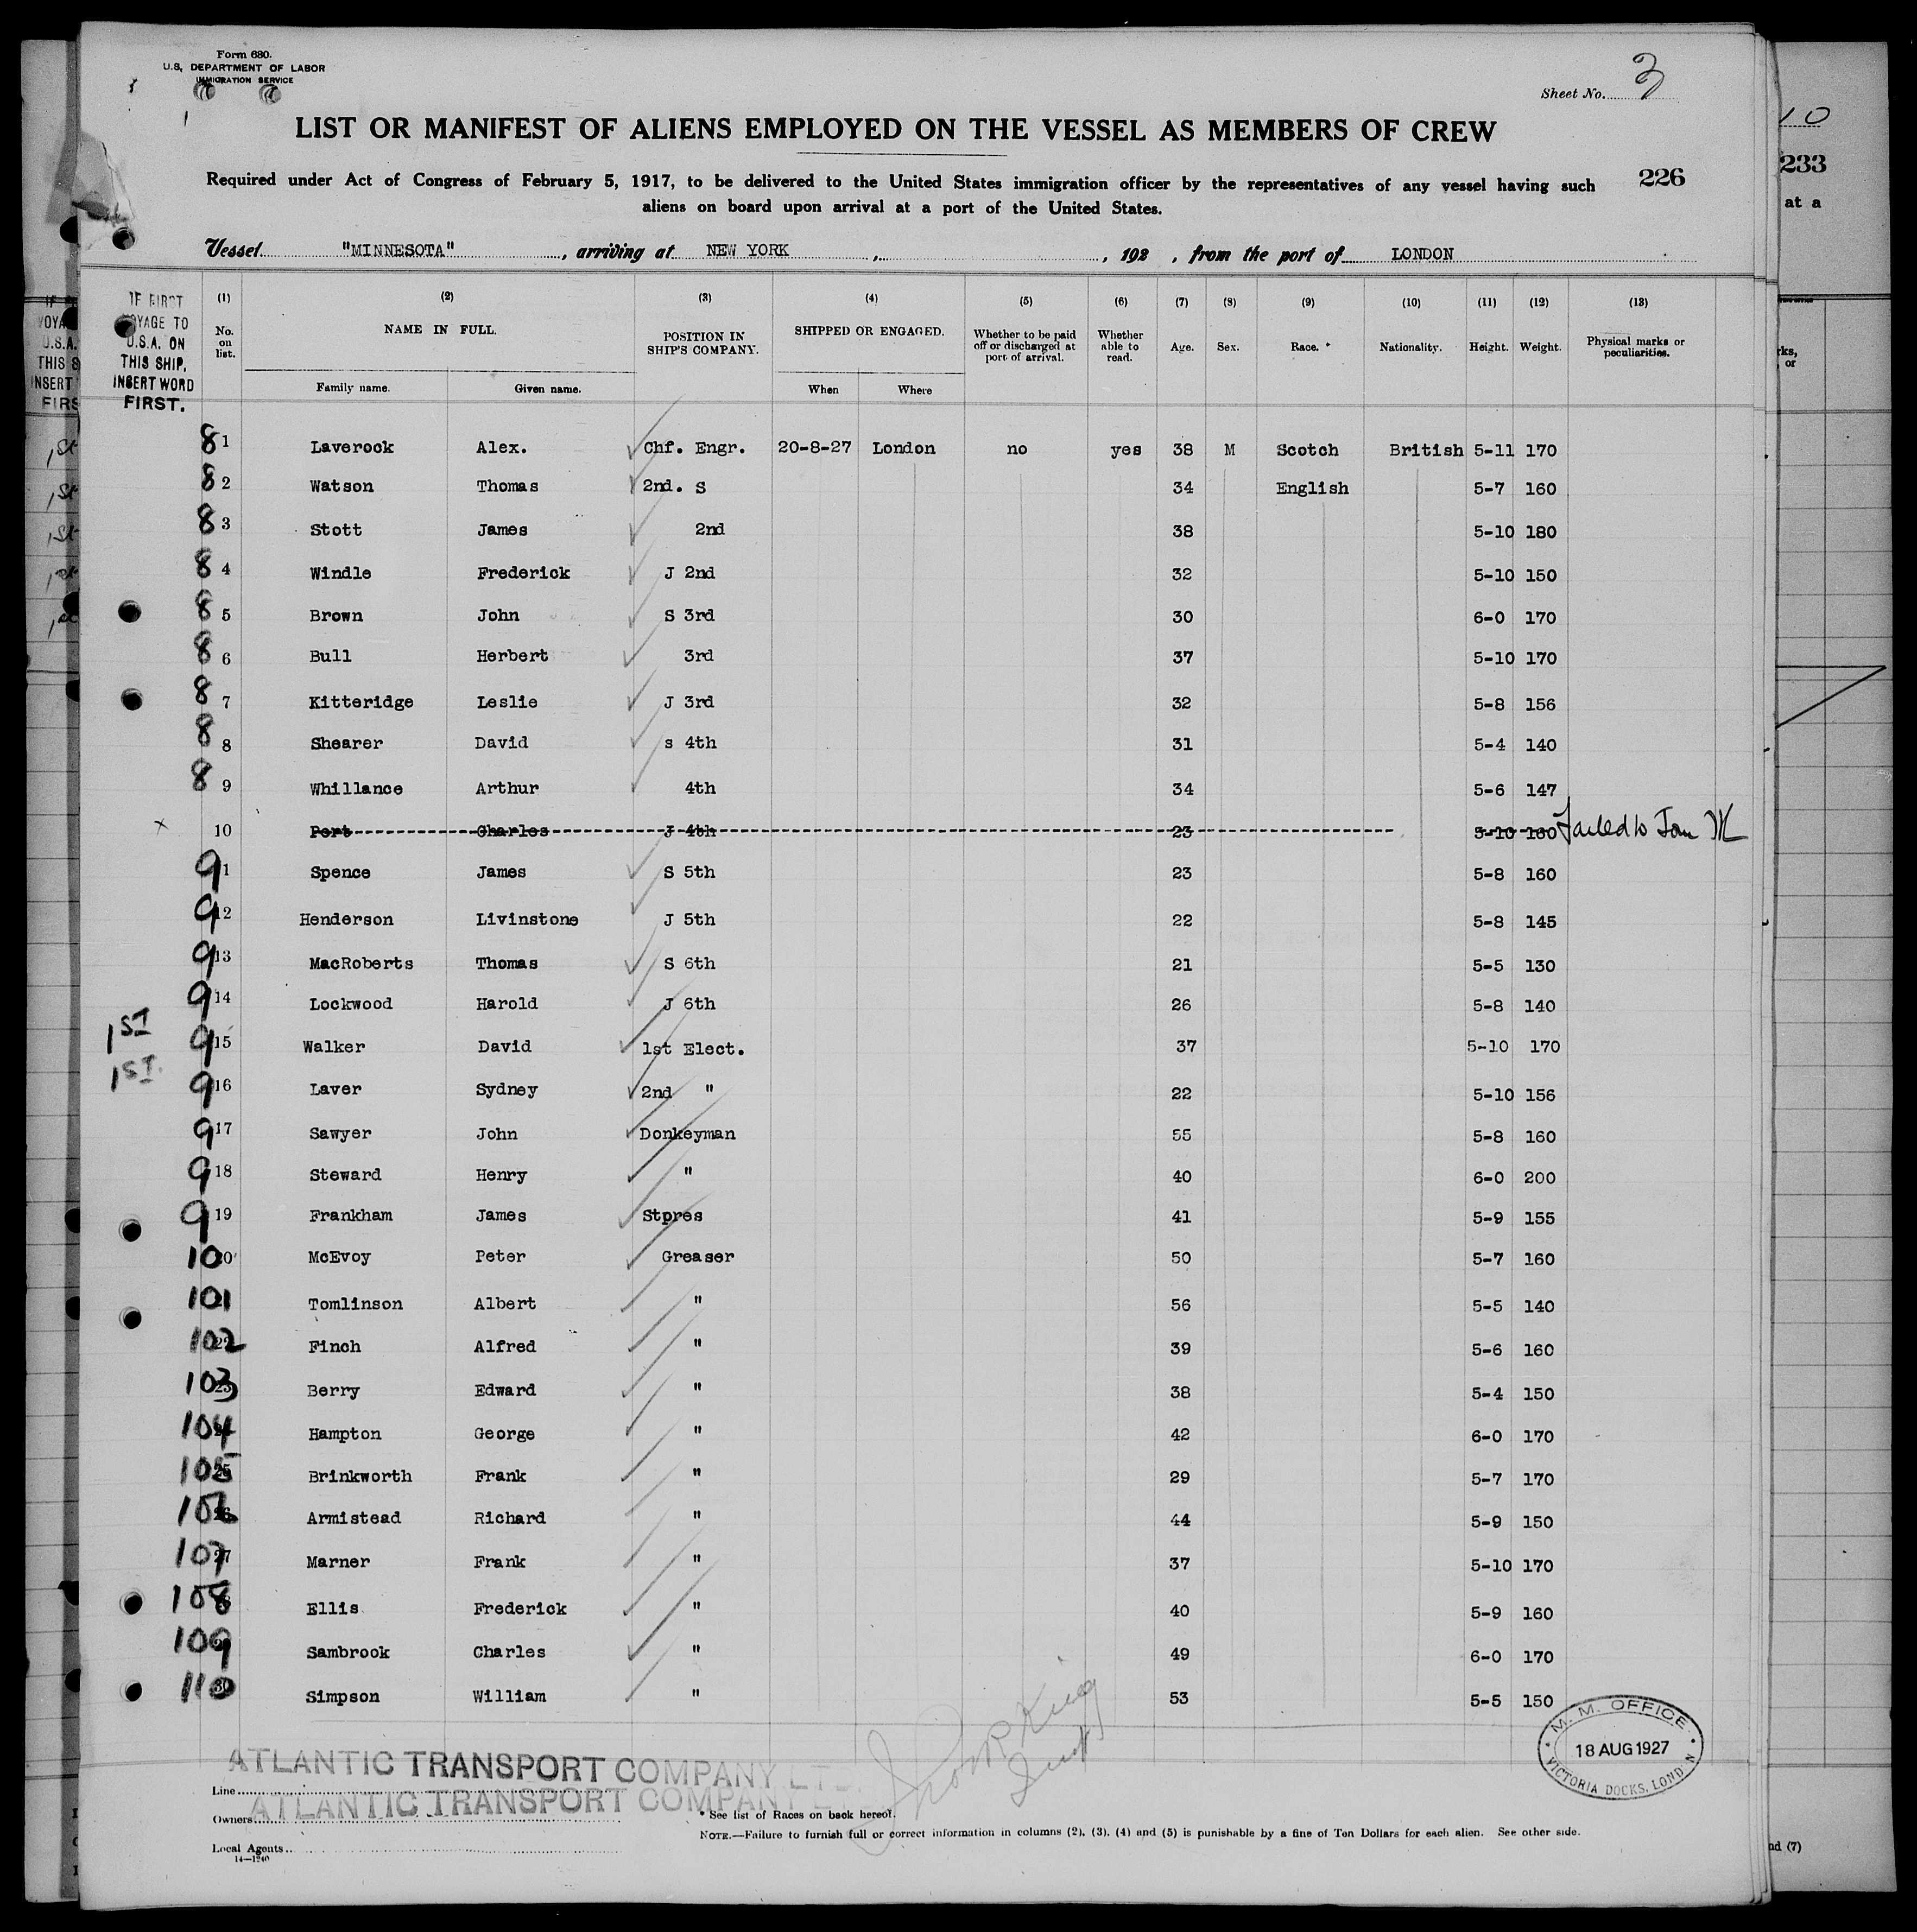 Form 680.
U.S. DEPARTMENT OF LABOR
IMMIGRATION SERVICE
Sheet No. 3
LIST OR MANIFEST OF ALIENS EMPLOYED ON THE VESSEL AS MEMBERS OF CREW
Required under Act of Congress of February 5, 1917, to be delivered to the United States immigration officer by the representatives of any vessel having such
aliens on board upon arrival at a port of the United States.
226
Vessel "MINNESOTA", arriving at NEW YORK, , 192 , from the port of LONDON
IF FIRST VOYAGE TO U.S.A. ON THIS SHIP, INSERT WORD FIRST.
(1) No. on list. (2) NAME IN FULL. Family name. Given name. (3) POSITION IN SHIP'S COMPANY. (4) SHIPPED OR ENGAGED. When Where (5) Whether to be paid off or discharged at port of arrival. (6) Whether able to read. (7) Age. (8) Sex. (9) Race. * (10) Nationality. (11) Height. (12) Weight. (13) Physical marks or peculiarities.
8 1 Laverock Alex. Chf. Engr. 20-8-27 London no yes 38 M Scotch British 5-11 170
8 2 Watson Thomas 2nd. S 34 English 5-7 160
8 3 Stott James 2nd 38 5-10 180
8 4 Windle Frederick J 2nd 32 5-10 150
8 5 Brown John S 3rd 30 6-0 170
8 6 Bull Herbert 3rd 37 5-10 170
8 7 Kitteridge Leslie J 3rd 32 5-8 156
8 8 Shearer David s 4th 31 5-4 140
8 9 Whillance Arthur 4th 34 5-6 147
x 10 Port Charles J 4th 23 5-10 160 Failed to Join
9 1 Spence James S 5th 23 5-8 160
9 12 Henderson Livinstone J 5th 22 5-8 145
9 13 MacRoberts Thomas S 6th 21 5-5 130
9 14 Lockwood Harold J 6th 26 5-8 140
1ST 9 15 Walker David 1st Elect. 37 5-10 170
1ST. 9 16 Laver Sydney 2nd " 22 5-10 156
9 17 Sawyer John Donkeyman 55 5-8 160
9 18 Steward Henry " 40 6-0 200
9 19 Frankham James Stpres 41 5-9 155
10 20 McEvoy Peter Greaser 50 5-7 160
101 Tomlinson Albert " 56 5-5 140
102 22 Finch Alfred " 39 5-6 160
103 23 Berry Edward " 38 5-4 150
104 Hampton George " 42 6-0 170
105 25 Brinkworth Frank " 29 5-7 170
106 26 Armistead Richard " 44 5-9 150
107 27 Marner Frank " 37 5-10 170
108 Ellis Frederick " 40 5-9 160
109 Sambrook Charles " 49 6-0 170
110 30 Simpson William " 53 5-5 150
M. M. OFFICE
18 AUG 1927
VICTORIA DOCKS, LONDON
ATLANTIC TRANSPORT COMPANY LTD
Line
ATLANTIC TRANSPORT COMPANY
Owners
* See list of Races on back hereof.
NOTE.—Failure to furnish full or correct information in columns (2), (3), (4) and (5) is punishable by a fine of Ten Dollars for each alien. See other side.
Local Agents
14—1240
10
233
at a
nd (7)